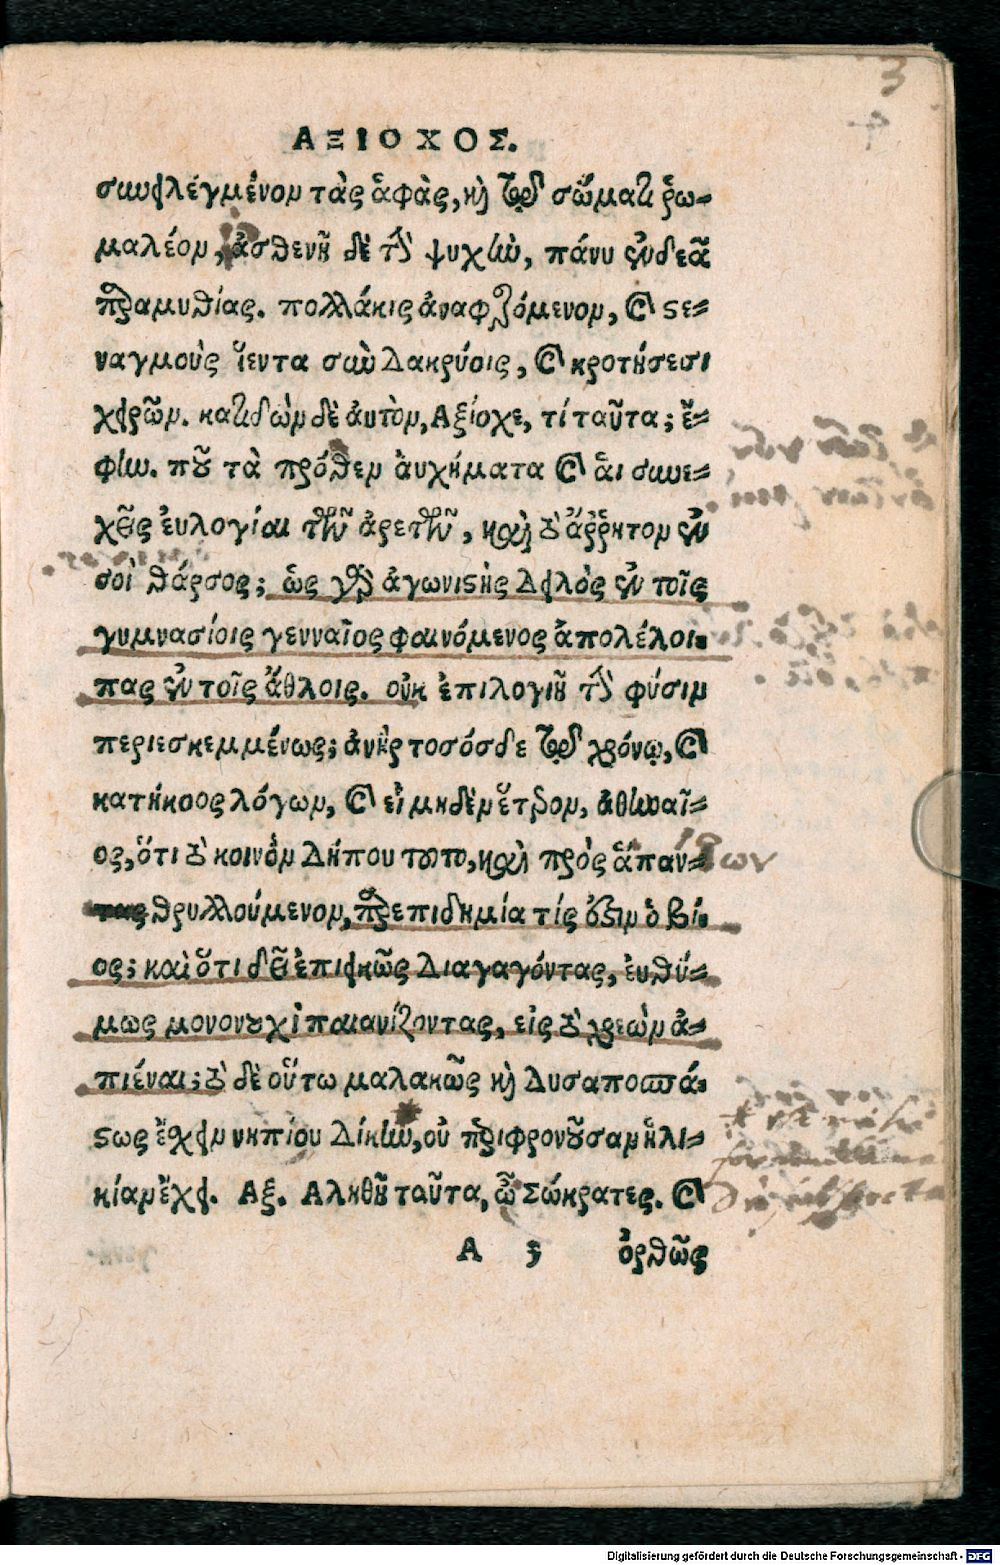 3
4
ΑΞΙΟΧΟΣ.
συνειλεγμένον τὰς ἁφὰς, καὶ τῷ σώματι ῥω-
μαλέον, ἀσθενῆ δὲ τὴν ψυχὴν, πάνυ ἐνδεᾶ
παραμυθίας. πολλάκις ἀναφερόμενον, καὶ στε-
ναγμοὺς ἵεντα σὺν δακρύοις, καὶ κροτήσεσι
χειρῶν. κατιδὼν δὲ ἀυτὸν, Αξίοχε, τί ταῦτα; ἔ-
φην. ποῦ τὰ πρόσθεν ἀυχήματα καὶ ἁι συνε-
χεῖς ἐυλογίαι τῶν ἀρετῶν, καὶ τὸ ἄῤῥηκτον ἐν
σοὶ θάρσος; ὡς γὰρ ἀγωνιστὴς δειλὸς ἐν τοῖς
γυμνασίοις γενναῖος φαινόμενος ἀπολέλοι-
πας ἐν τοῖς ἄθλοις. οὐκ ἐπιλογιῇ τὴν φύσιν
περιεσκεμμένως; ἀνὴρ τοσόσδε τῷ χρόνῳ, καὶ
κατήκοος λόγων, καὶ εἰ μηδὲν ἕτερον, ἀθηναῖ-
ος, ὅτι τὸ κοινὸν δήπου τοῦτο, καὶ πρὸς ἅπαν-
τας θρυλλούμενον, παρεπιδημία τίς ἐστιν ὁ βί-
ος; καὶ ὅτι δεῖ ἐπιεικῶς διαγαγόντας, ἐυθύ-
μως μονονουχὶ παιανίζοντας, εἰς τὸ χρεὼν ἀ-
πιέναι; τὸ δὲ οὕτω μαλακῶς καὶ δυσαποσπά-
στως ἔχειν νηπίου δίκην, οὐ περιφρονοῦσαν ἡλι-
κίαν ἔχει. Αξ. Αληθῆ ταῦτα, ὦ Σώκρατες. καὶ
Α 3 ὀρθῶς
Digitalisierung gefördert durch die Deutsche Forschungsgemeinschaft - DFG